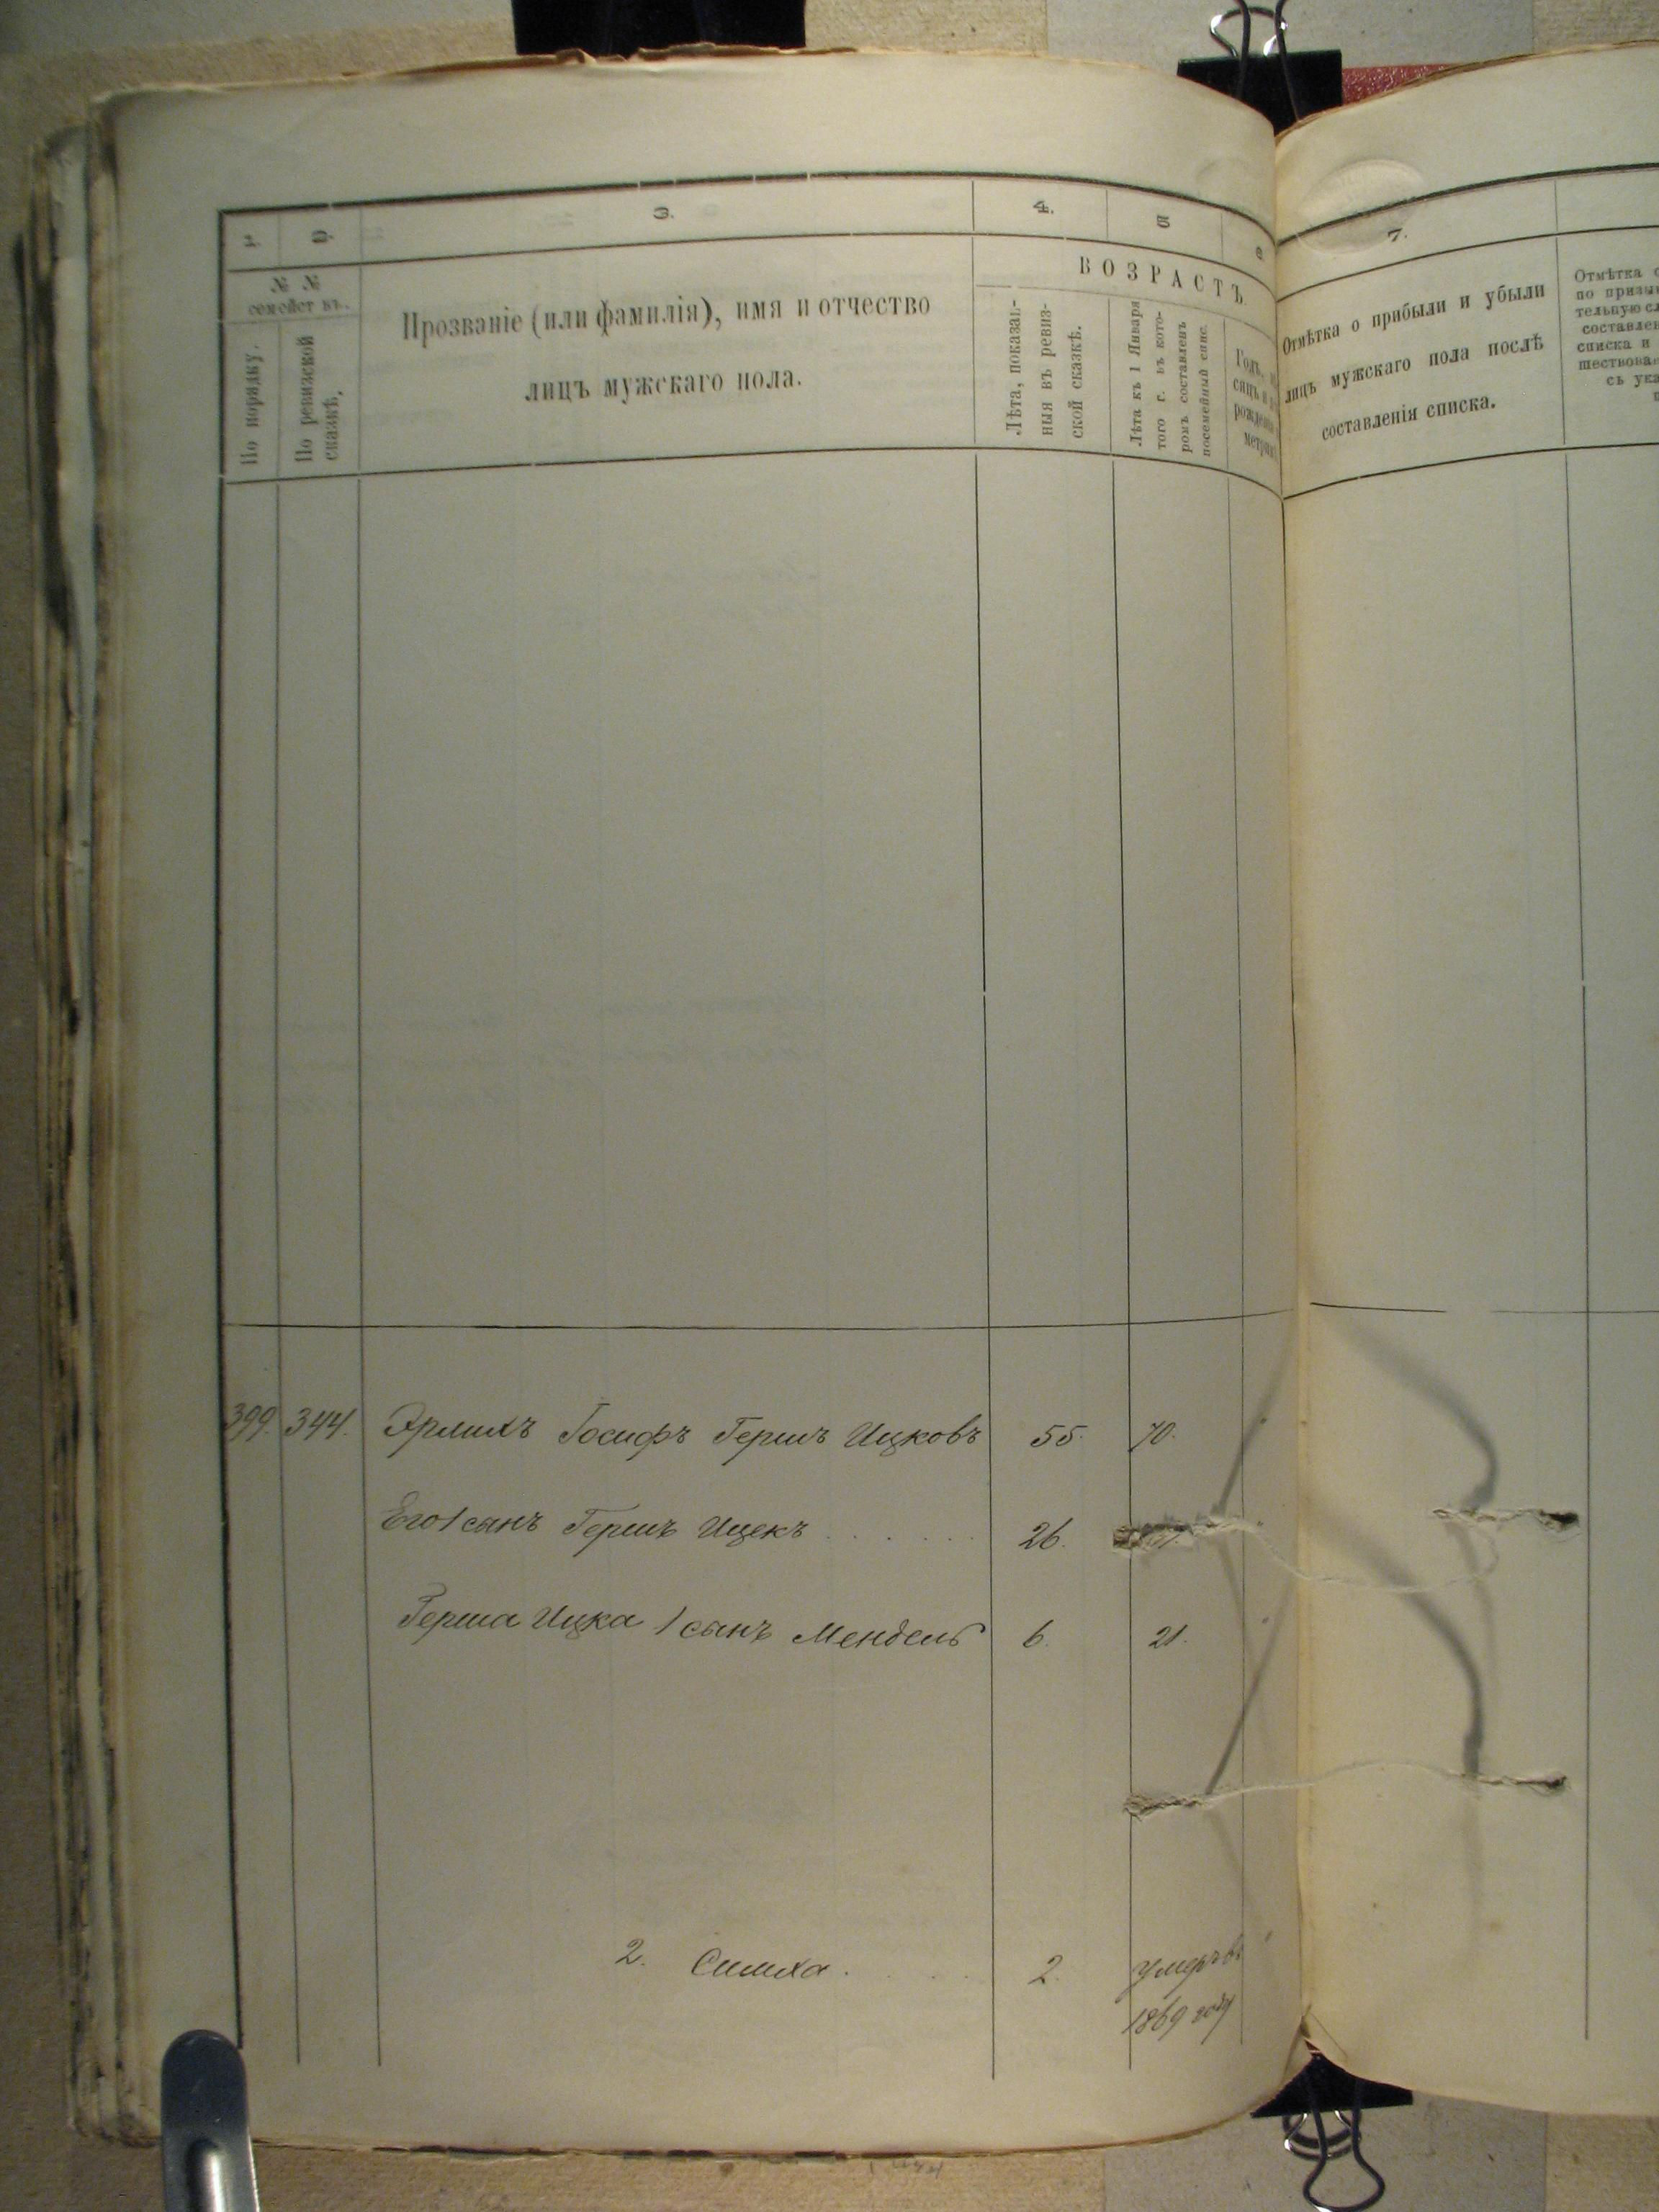 1. 2. 3. 4. 5 6 7.
№ №
семействъ.
По порядку.
По ревизской
сказкѣ.
Прозваніе (или фамилія), имя и отчество
лицъ мужскаго пола.
ВОЗРАСТЪ
Лѣта, показан-
ныя въ ревиз-
ской сказкѣ.
Лѣта къ 1 Января
того г. въ кото-
ромъ составленъ
посемейный спис.
Отмѣтка о прибыли и убыли
лицъ мужскаго пола послѣ
составленія списка.
Отмѣтка
списка и
399. 344. Эрлихъ Іосифъ Гершъ Ицковъ 55. 70.
Его 1 сынъ Гершъ Ицекъ 26.
Герша Ицка 1 сынъ Мендель 6. 21.
2. Симха 2. умеръ въ
1869 году